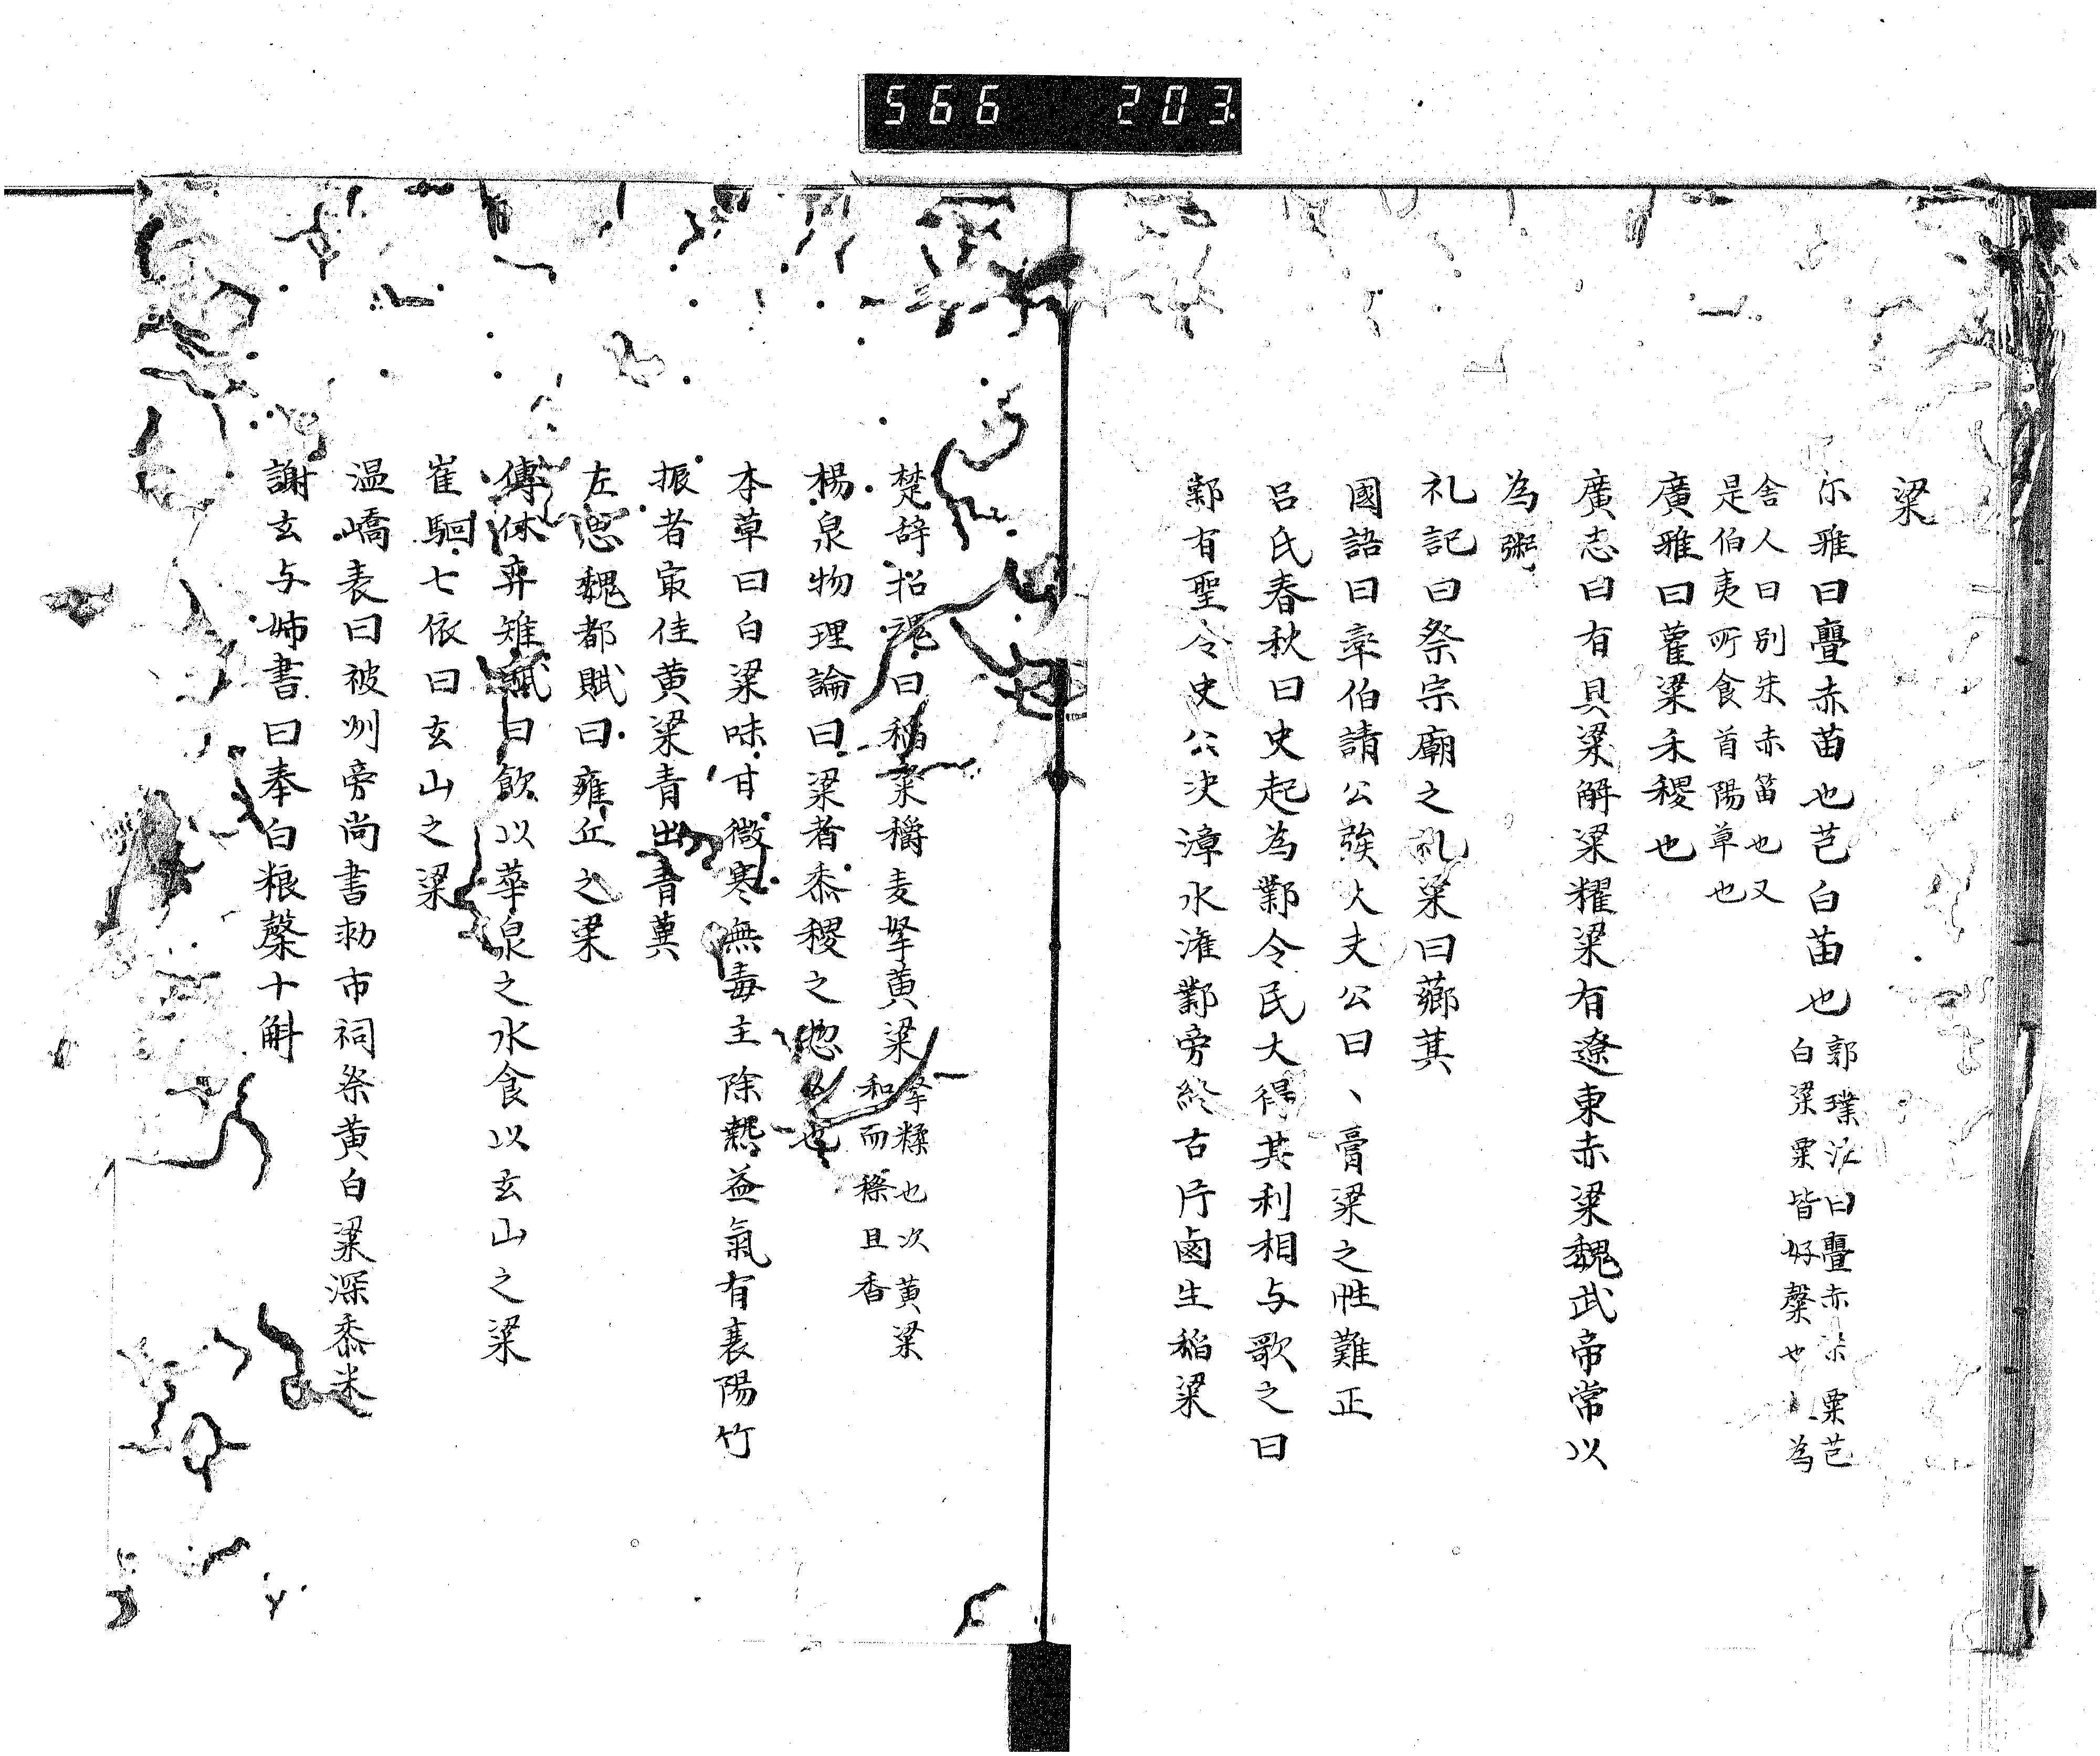 566 203
粱
尓雅曰虋赤苗也芑白苗也郭璞注曰虋赤粱粟芑
白粱粟皆好糵也 為
舍人曰別朱赤苗也又
是伯夷所食首陽草也
廣雅曰藋粱禾稷也
廣志曰有具粱解粱糴粱有遼東赤粱魏武帝常以
為粥
礼記曰祭宗廟之礼粱曰薌萁
國語曰欒伯請公族大夫公曰、膏粱之性難正
呂氏春秋曰史起為鄴令民大得其利相与歌之曰
鄴有聖令史公决漳水潅鄴旁終古斥鹵生稻粱
楚辞招魂曰稻粢穱麦挐黄粱挐糅也次黄粱
和而糅且香
楊泉物理論曰粱者黍稷之惣名也
本草曰白粱味甘微寒無毒主除熱益氣有襄陽竹
振者冣佳黄粱青出青冀
左思魏都賦曰雍丘之粱
傅休弈雉賦曰飲以華泉之水食以玄山之粱
崔駰七依曰玄山之粱
温嶠表曰被州旁尚書勑市祠祭黄白粱深黍米
謝玄与姉書曰奉白粮糵十斛